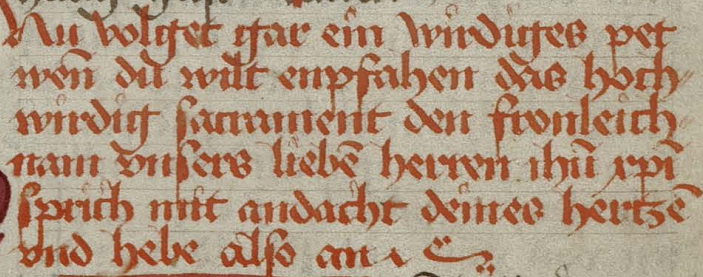 Nu volget gar ein wirdiges pet
wen̄ du wilt enpfahen das hoch
wirdig sacrament den fronleich
nam vnsers liebē herren ihū xp̄i
sprich mit andacht deines hertzē
vnd hebe also an